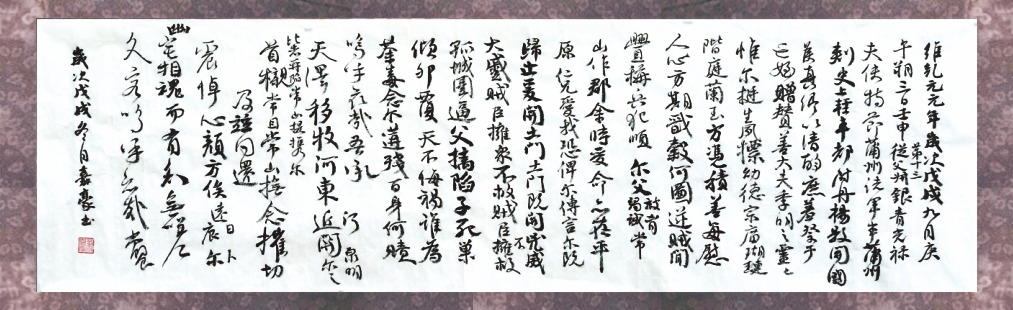 維乾元元年歲次戊戌九月庚
午朔三日壬申從父第十三銀青光祿
夫使持節蒲州諸軍事蒲州
刺史上輕車都尉丹楊縣開國
侯真卿以清酌庶羞祭于
亡姪贈贊善大夫季明之靈
惟爾挺生夙標幼德宗廟瑚璉
階庭蘭玉方憑積善每慰
人心方期戩穀何圖逆賊間
釁稱兵犯順爾父竭誠常
山作郡余時受命亦在平
原仁兄愛我恐俾爾傳言爾既
歸止爰開土門土門既開凶威
大蹙賊臣擁眾不救賊臣擁救
孤城圍逼父擒陷子死巢
傾卵覆天不悔禍誰為
荼毒念爾遘殘百身何贖
嗚呼哀哉吾承
天澤移牧河東近河關爾之泉明
比者再陷常山提攜爾
首櫬常自常山撫念摧切
及茲同還
震悼心顏方俟遠日卜爾
宅相魂而有知無嗟
久客嗚呼哀哉尚饗
歲次戊戌冬月嘉豪書